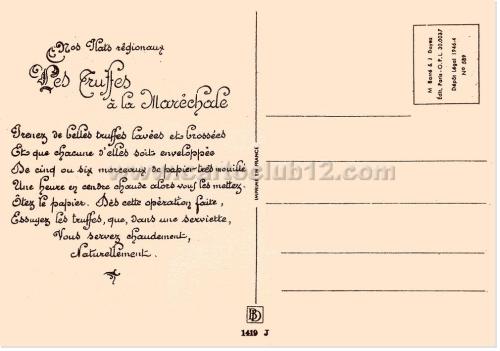 Nos Plats régionaux
Les Truffes
à la Maréchale
Prenez de belles truffes lavées et brossées
Et que chacune d'elles soit enveloppée
De cinq ou six morceaux de papier très mouillé
Une heure en cendre chaude alors vous les mettez.
Ôtez le papier. Dès cette opération faite,
Essuyez les truffes, que, dans une serviette,
Vous servez chaudement,
Naturellement.
www.cartoclub12.com
IMPRIMÉ EN FRANCE
M. Barré & J. Dayez
Édit. Paris - O.P.L. 30.0037
Dépôt Légal 1946-4
N° 589
BD
1419 J